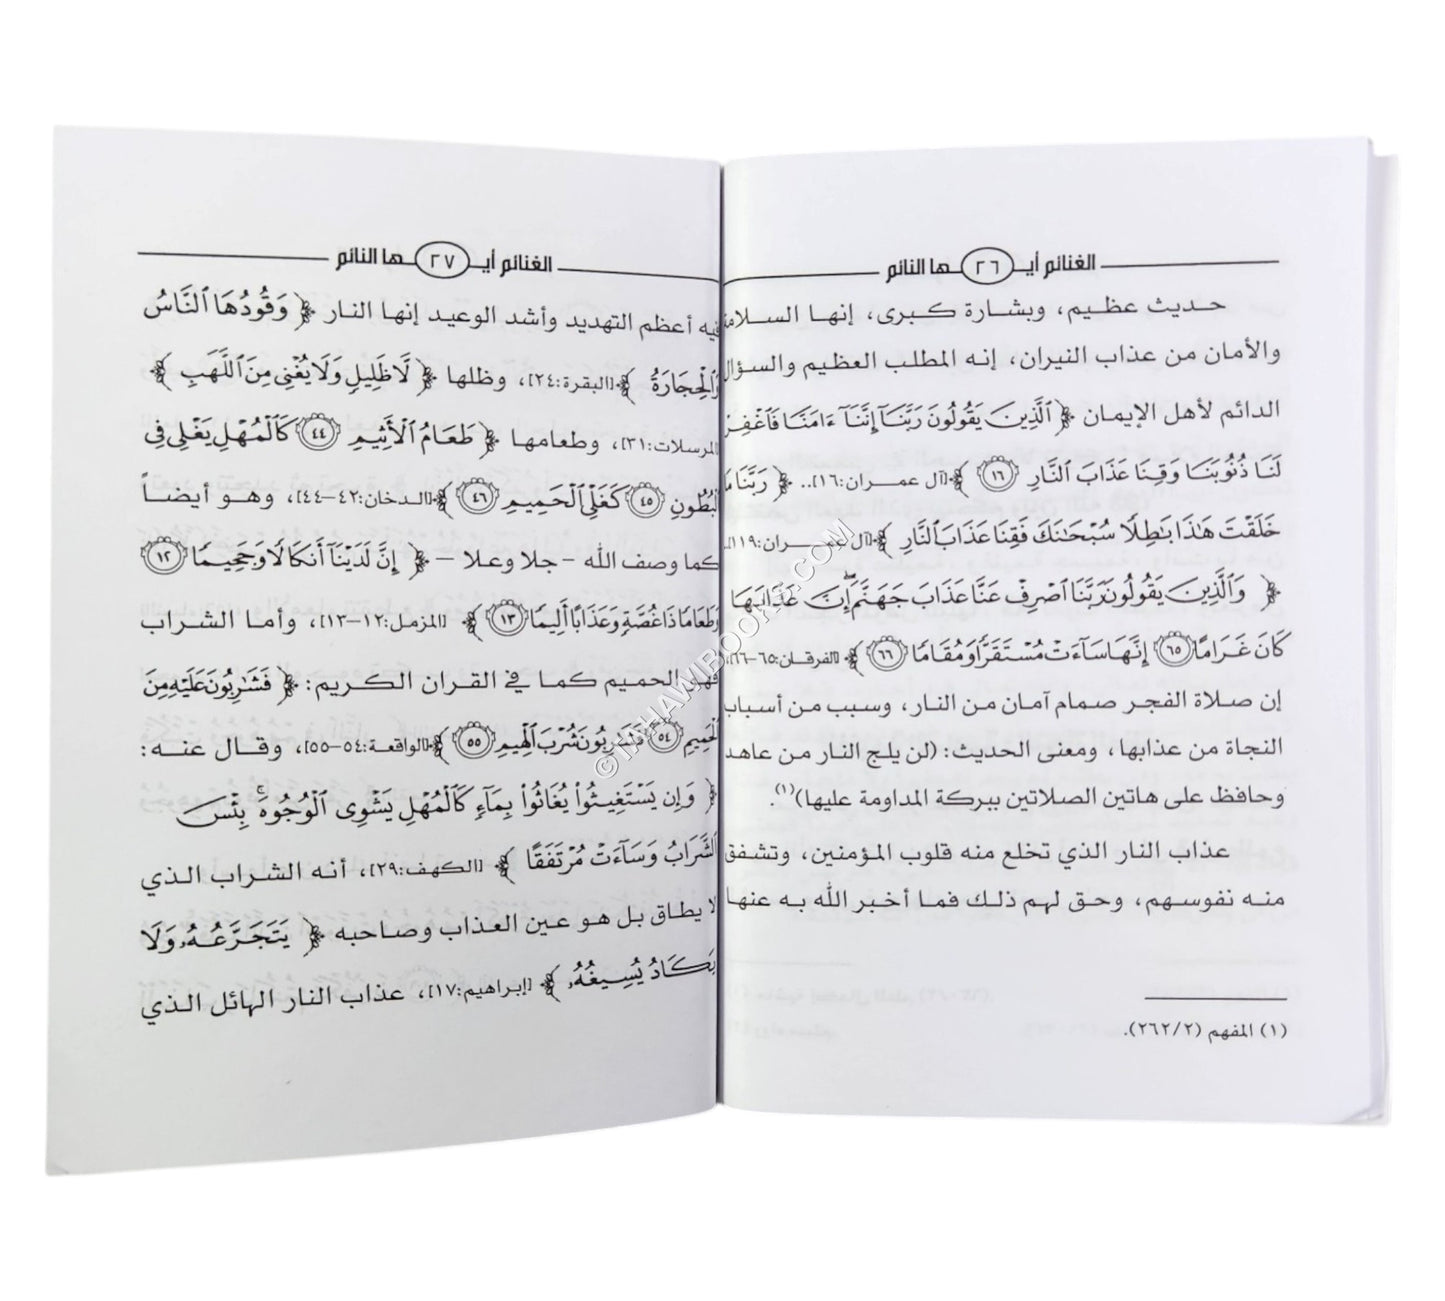 الغنائم أيـ ٢٦ ـها النائم
حديث عظيم، وبشارة كبرى، إنها السلامة
والأمان من عذاب النيران، إنه المطلب العظيم والسؤال
الدائم لأهل الإيمان ﴿ ٱلَّذِينَ يَقُولُونَ رَبَّنَآ إِنَّنَآ ءَامَنَّا فَٱغْفِرْ
لَنَا ذُنُوبَنَا وَقِنَا عَذَابَ ٱلنَّارِ ١٦ ﴾ [آل عمران:١٦].. ﴿ رَبَّنَا مَا
خَلَقْتَ هَٰذَا بَٰطِلًا سُبْحَٰنَكَ فَقِنَا عَذَابَ ٱلنَّارِ ﴾ [آل عمران:١١٩]..
﴿ وَٱلَّذِينَ يَقُولُونَ رَبَّنَا ٱصْرِفْ عَنَّا عَذَابَ جَهَنَّمَ ۖ إِنَّ عَذَابَهَا
كَانَ غَرَامًا ٦٥ إِنَّهَا سَآءَتْ مُسْتَقَرًّا وَمُقَامًا ٦٦ ﴾ [الفرقان:٦٥-٦٦]،
إن صلاة الفجر صمام آمان من النار، وسبب من أسباب
النجاة من عذابها، ومعنى الحديث: (لن يلج النار من عاهد
وحافظ على هاتين الصلاتين ببركة المداومة عليها)(١).
عذاب النار الذي تخلع منه قلوب المؤمنين، وتشفق
منه نفوسهم، وحق لهم ذلك فما أخبر الله به عنها
(١) المفهم (٢/٢٦٢).
الغنائم أيـ ٢٧ ـها النائم
فيه أعظم التهديد وأشد الوعيد إنها النار ﴿ وَقُودُهَا ٱلنَّاسُ
وَٱلْحِجَارَةُ ﴾ [البقرة:٢٤]، وظلها ﴿ لَّا ظَلِيلٍ وَلَا يُغْنِى مِنَ ٱللَّهَبِ ﴾
[المرسلات:٣١]، وطعامها ﴿ طَعَامُ ٱلْأَثِيمِ ٤٤ كَٱلْمُهْلِ يَغْلِى فِى
ٱلْبُطُونِ ٤٥ كَغَلْىِ ٱلْحَمِيمِ ٤٦ ﴾ [الدخان:٤٢-٤٤]، وهو أيضاً
كما وصف الله - جلا وعلا - ﴿ إِنَّ لَدَيْنَآ أَنكَالًا وَجَحِيمًا ١٢
وَطَعَامًا ذَا غُصَّةٍ وَعَذَابًا أَلِيمًا ١٣ ﴾ [المزمل:١٢-١٣]، وأما الشراب
فهو الحميم كما في القران الكريم: ﴿ فَشَٰرِبُونَ عَلَيْهِ مِنَ
ٱلْحَمِيمِ ٥٤ فَشَٰرِبُونَ شُرْبَ ٱلْهِيمِ ٥٥ ﴾ [الواقعة:٥٤-٥٥]، وقال عنه:
﴿ وَإِن يَسْتَغِيثُوا۟ يُغَاثُوا۟ بِمَآءٍ كَٱلْمُهْلِ يَشْوِى ٱلْوُجُوهَ ۚ بِئْسَ
ٱلشَّرَابُ وَسَآءَتْ مُرْتَفَقًا ﴾ [الكهف:٢٩]، أنه الشراب الذي
لا يطاق بل هو عين العذاب وصاحبه ﴿ يَتَجَرَّعُهُۥ وَلَا
يَكَادُ يُسِيغُهُۥ ﴾ [إبراهيم:١٧]، عذاب النار الهائل الذي